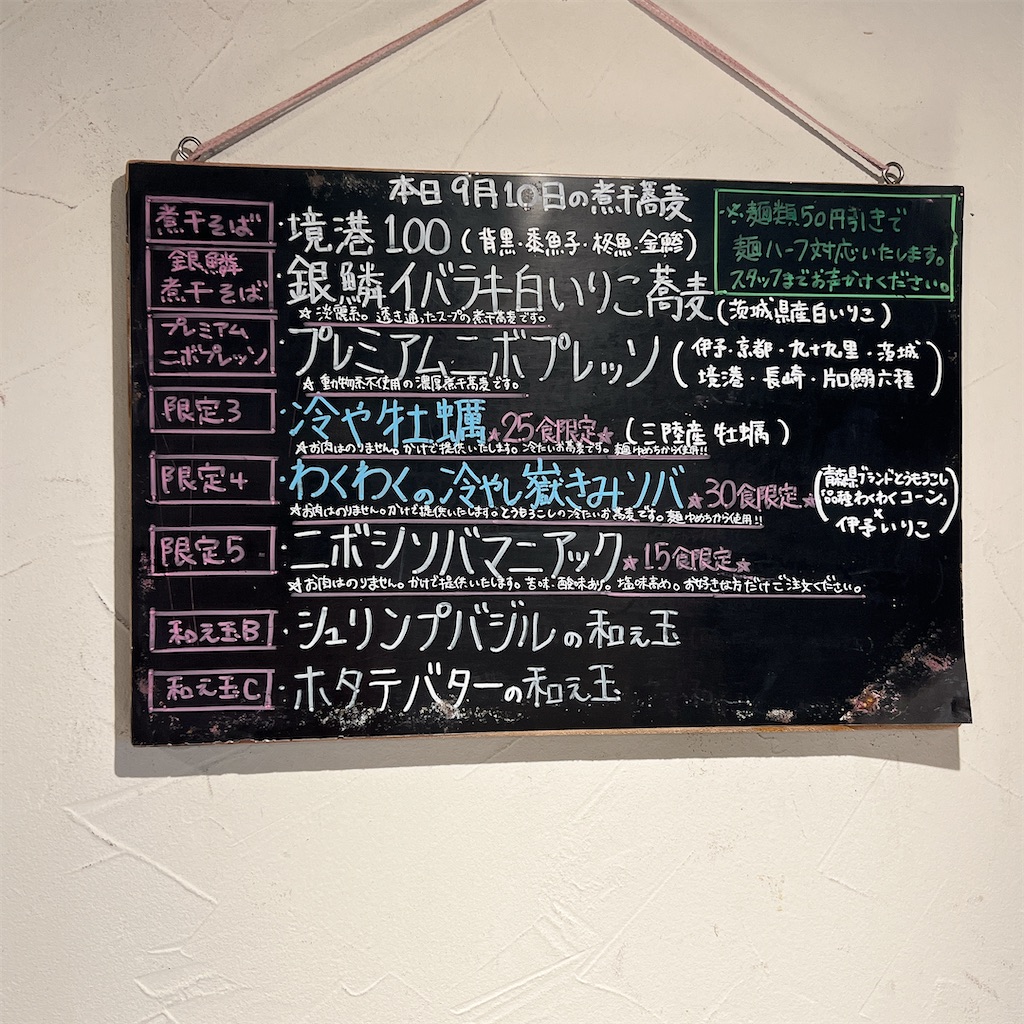 本日9月10日の煮干蕎麦
※麺類50円引きで
麺ハーフ対応いたします。
スタッフまでお声かけください。
煮干そば
・境港100(背黒・黍魚子・柊魚・金鯵)
銀鱗
煮干そば
・銀鱗イバラキ白いりこ蕎麦(茨城県産白いりこ)
☆淡麗系。透き通ったスープの煮干蕎麦です。
プレミアム
ニボプレッソ
・プレミアムニボプレッソ
(伊予・京都・九十九里・茨城
境港・長崎・片口鰯六種)
☆動物系不使用の濃厚煮干蕎麦です。
限定3
・冷や牡蠣☆25食限定☆(三陸産牡蠣)
☆お肉はのりません。かけで提供いたします。冷たいお蕎麦です。麺ゆめちから使用!!
限定4
・わくわくの冷やし嶽きみソバ☆30食限定☆
(青森県ブランドとうもろこし
「品種わくわくコーン」
×
伊予いりこ)
☆お肉はのりません。かけで提供いたします。とうもろこしの冷たいお蕎麦です。麺ゆめちから使用!!
限定5
・ニボシソバマニアック☆15食限定☆
☆お肉はのりません。かけで提供いたします。苦味・酸味あり。塩味高め。お好きな方だけご注文ください。
和え玉B
・シュリンプバジルの和え玉
和え玉C
・ホタテバターの和え玉